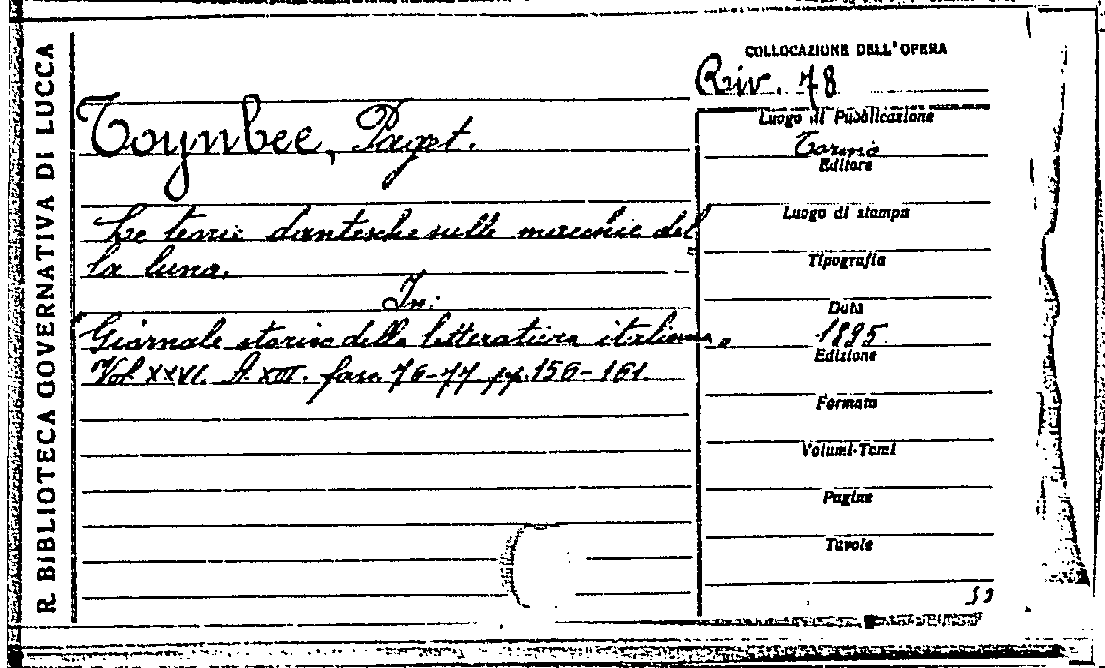 R. BIBLIOTECA GOVERNATIVA DI LUCCA
COLLOCAZIONE DELL'OPERA
Riv. 78
Toynbee, Paget.
Le teorie dantesche sulle macchie del
la luna.
In:
"Giornale storico della letteratura italiana"
Vol. XXVI. A. XIII. fasc. 76-77 pp. 156-161.
Luogo di Pubblicazione
Torino
Editore
Luogo di stampa
Tipografia
Data
1895
Edizione
Formato
Volumi-Tomi
Pagine
Tavole